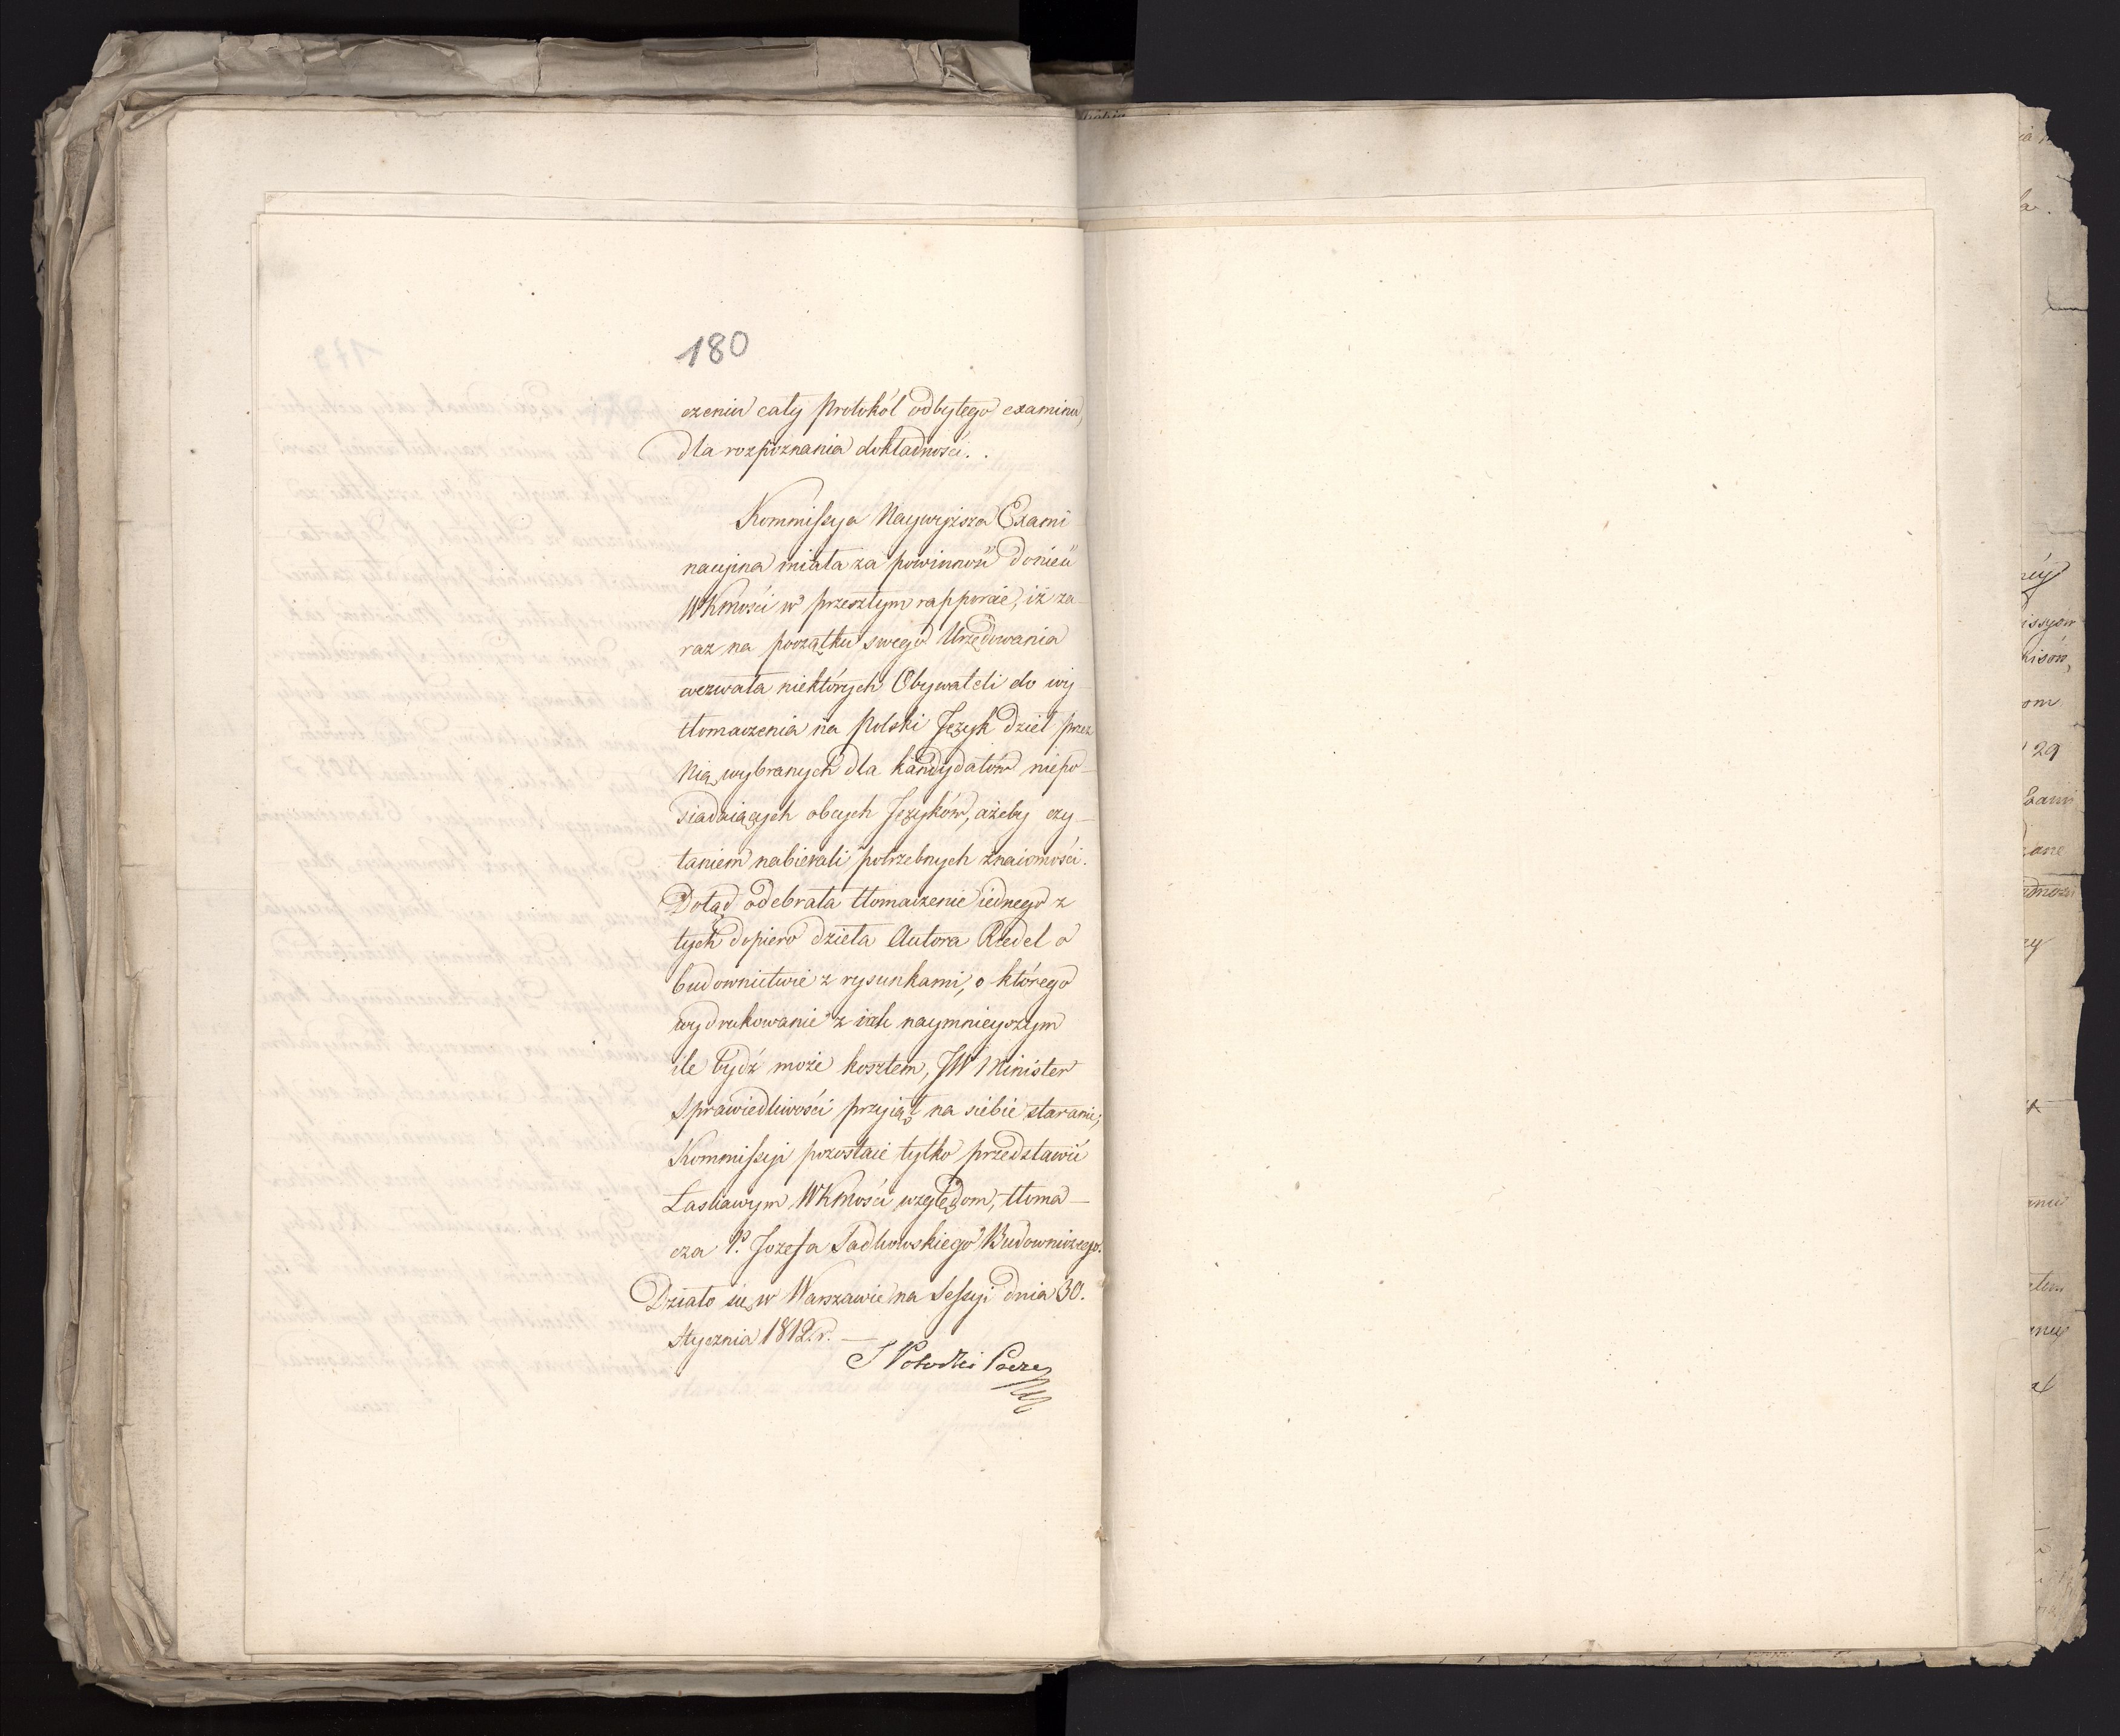 180
czeniu cały Protokół odbytego examinu,
dla rozpoznania dokładności.
Kommissya Naywyższa Exami-
nacyina miała za powinność donieść
WKMości w przeszłym rapporcie, iż za-
raz na początku swego Urzędowania
wezwała niektórych Obywateli do wy-
tłomaczenia na Polski Język dzieł przez
Nią wybranych dla kandydatów niepo-
siadaiących obcych Języków, ażeby czy-
taniem nabierali potrzebnych znaiomości.
Dotąd odebrała tłomaczenie iednego z
tych dopiero dzieła Autora Riedel o
budownictwie z rysunkami, o którego
wydrukowanie z iak naymnieyszym
ile bydź może kosztem, JW Minister
Sprawiedliwości przyiął na siebie staranie,
Kommissyi pozostaie tylko przedstawić
Łaskawym WKMości względom, tłoma-
cza P. Jozefa Sadkowskiego Budowniczego.
Działo się w Warszawie na Sessyi dnia 30.
Stycznia 1812. r.
S Potocki Preze